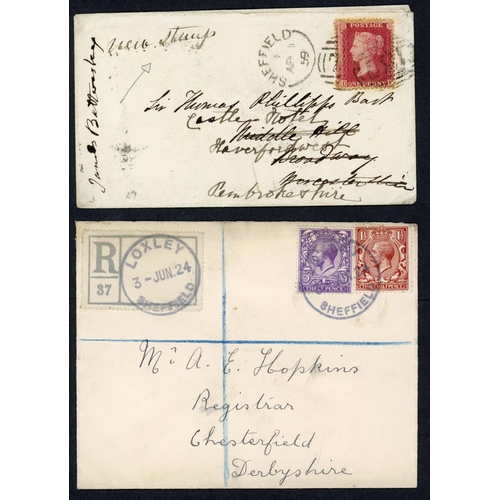 James Battersley
new stamp
SHEFFIELD
59
POSTAGE
ONE PENNY
Sir Thomas Phillipps Bart
Castle Hotel
Middle Hill
Haverfordwest
Broadway
Worcestershire
Pembrokeshire
R
37
LOXLEY
3-JUN.24
SHEFFIELD
THREE PENCE
SHEFFIELD
Mr A. E. Hopkins
Registrar
Chesterfield
Derbyshire